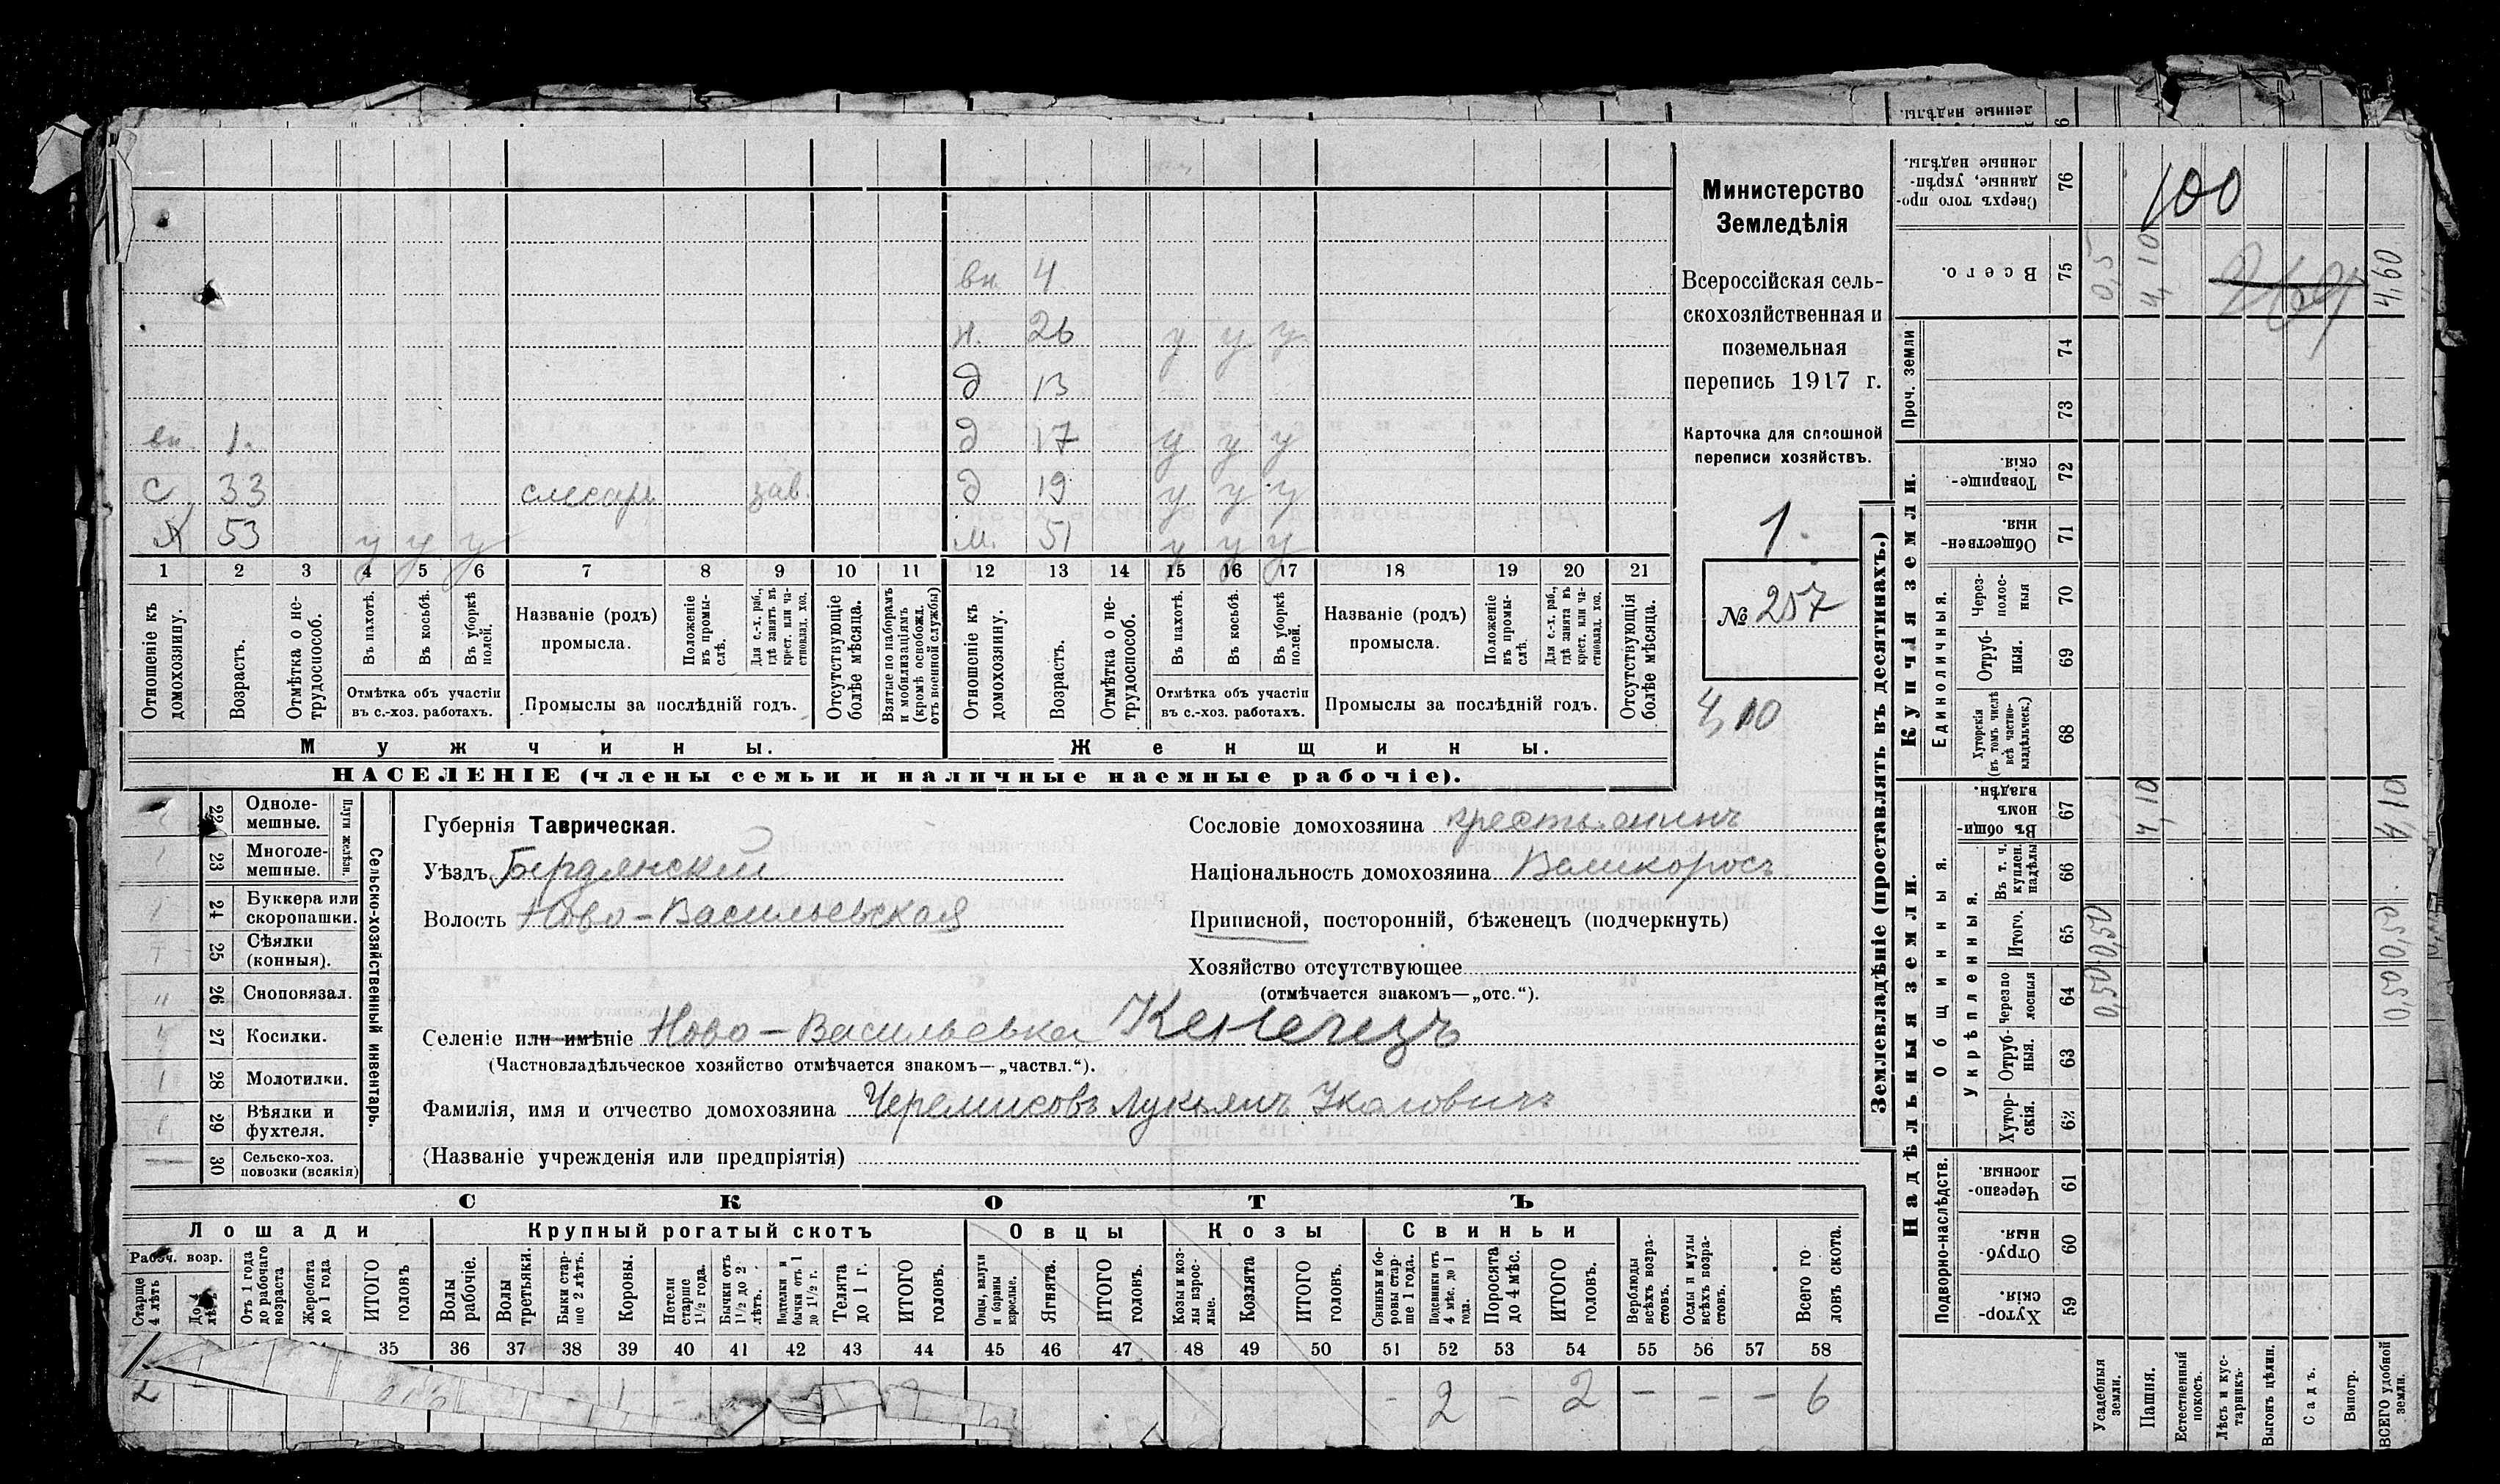 вн. 4
н. 26 у у у
д 13
вн. 1. д 17 у у у
с 33 слесарь зав. д 19 у у у
х 53 у у у м. 51 у у у
1 2 3 4 5 6 7 8 9 10 11 12 13 14 15 16 17 18 19 20 21
Отношеніе къ домохозяину.
Возрастъ.
Отмѣтка о не-трудоспособ.
Въ пахотѣ.
Въ косьбѣ.
Въ уборкѣ полей.
Отмѣтка объ участіи
въ с.-хоз. работахъ.
Названіе (родъ)
промысла.
Положеніе въ промы-слѣ.
Для с.-х. раб., гдѣ занятъ въ крест. или ча-стновлад. хоз.
Промыслы за послѣдній годъ.
Отсутствующіе болѣе мѣсяца.
Взятые по наборамъ и мобилизаціямъ (кромѣ освобожд. отъ военной службы)
Отношеніе къ домохозяину.
Возрастъ.
Отмѣтка о не-трудоспособ.
Въ пахотѣ.
Въ косьбѣ.
Въ уборкѣ полей.
Отмѣтка объ участіи
въ с.-хоз. работахъ.
Названіе (родъ)
промысла.
Положеніе въ промы-слѣ.
Для с.-х. раб., гдѣ занята въ крест. или ча-стновлад. хоз.
Промыслы за послѣдній годъ.
Отсутствующія болѣе мѣсяца.
Мужчины. Женщины.
НАСЕЛЕНІЕ (члены семьи и наличные наемные рабочіе).
Министерство
Земледѣлія
Всероссійская сель-
скохозяйственная и
поземельная
перепись 1917 г.
Карточка для сплошной
переписи хозяйствъ.
1.
№ 257
4,10
Сельско-хозяйственный инвентарь.
Плуги желѣзн.
22 Одноле-мешные.
23 Многоле-мешные.
24 Буккера или скоропашки.
25 Сѣялки (конныя).
26 Сноповязал.
27 Косилки.
28 Молотилки.
29 Вѣялки и фухтеля.
30 Сельско-хоз. повозки (всякія)
Губернія Таврическая.
Уѣздъ Бердянскій
Волость Ново-Васильевская
Сословіе домохозяина крестьянинъ
Національность домохозяина Великоросъ
Приписной, посторонній, бѣженецъ (подчеркнуть)
Хозяйство отсутствующее
(отмѣчается знакомъ—„отс.“).
Селеніе или имѣніе Ново-Васильевка
(Частновладѣльческое хозяйство отмѣчается знакомъ—„частвл.“).
Фамилія, имя и отчество домохозяина Черемисовъ Лукьянъ
(Названіе учрежденія или предпріятія)
СКОТЪ
Лошади Крупный рогатый скотъ Овцы Козы Свиньи
Рабоч. возр.
Старше 4 лѣтъ
До 4 лѣтъ
Отъ 1 года до рабочаго возраста
Жеребята до 1 года
ИТОГО головъ
Волы рабочіе.
Волы третьяки.
Быки стар-ше 2 лѣтъ.
Коровы.
Нетели старше 1½ года.
Бычки отъ 1½ до 2 лѣтъ.
Подтелки и бычки отъ 1 до 1½ г.
Телята до 1 г.
ИТОГО головъ.
Овцы, валухи и бараны взрослые.
Ягнята.
ИТОГО головъ.
Козы и коз-лы взрос-лые.
Козлята
ИТОГО головъ.
Свиньи и бо-ровы стар-ше 1 года.
Подсвинки отъ 4 мѣс. до 1 года.
Поросята до 4 мѣс.
ИТОГО головъ.
Верблюды всѣхъ возра-стовъ.
Ослы и мулы всѣхъ возра-стовъ.
Всего го-ловъ скота.
35 36 37 38 39 40 41 42 43 44 45 46 47 48 49 50 51 52 53 54 55 56 57 58
2 - 1 - - 2 - 2 - - - 6
Землевладѣніе (проставлять въ десятинахъ.)
Надѣльныя земли. Купчія земли.
Проч. земли
Подворно-наслѣдств.
Общинныя.
Укрѣпленныя.
Единоличныя.
76 Сверхъ того про-данные, укрѣп-ленные надѣлы.
75 Всего. 0,5 4,10 4,60
74
73
72 Товарище-скія.
71 Обществен-ныя.
70 Через-полос-ныя
69 Отруб-ныя.
68 Хуторскія (въ томъ числѣ всѣ частно-владѣльческ.)
67 Въ общин-номъ владѣн. 4,10 4,10
66 Въ т. ч. куплен. надѣлы
65 Итого. 0,50 0,50
64 Черезпо-лосныя 0,50 0,50
63 Отруб-ныя.
62 Хутор-скія.
61 Черезпо-лосныя.
60 Отруб-ныя.
59 Хутор-скія.
Усадебныя земли.
Пашня.
Естественный покосъ.
Лѣсъ и кус-тарникъ.
Выгонъ цѣлин.
Садъ.
Виногр.
ВСЕГО удобной земли.
100
ленные надѣлы.